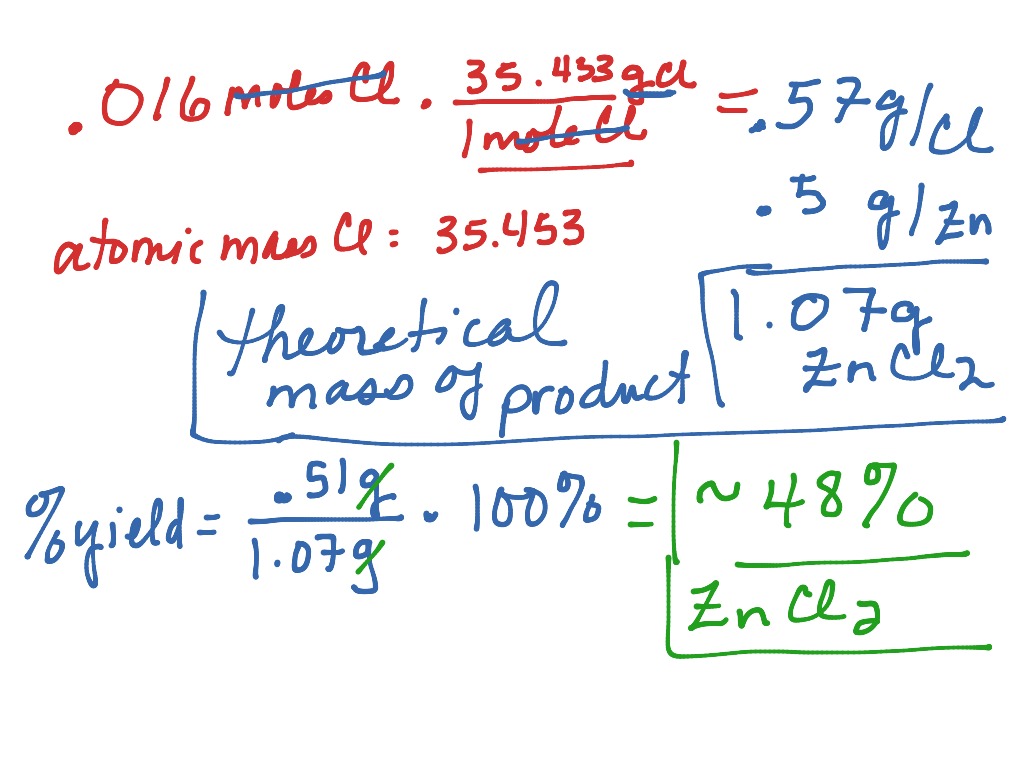 .016 moles Cl · 35.433 g Cl / 1 mole Cl = .57 g/Cl
.5 g/Zn
atomic mass Cl = 35.453
1.07g
ZnCl2
theoretical
mass of product
% yield = .51g / 1.07g · 100% = ~48%
ZnCl2